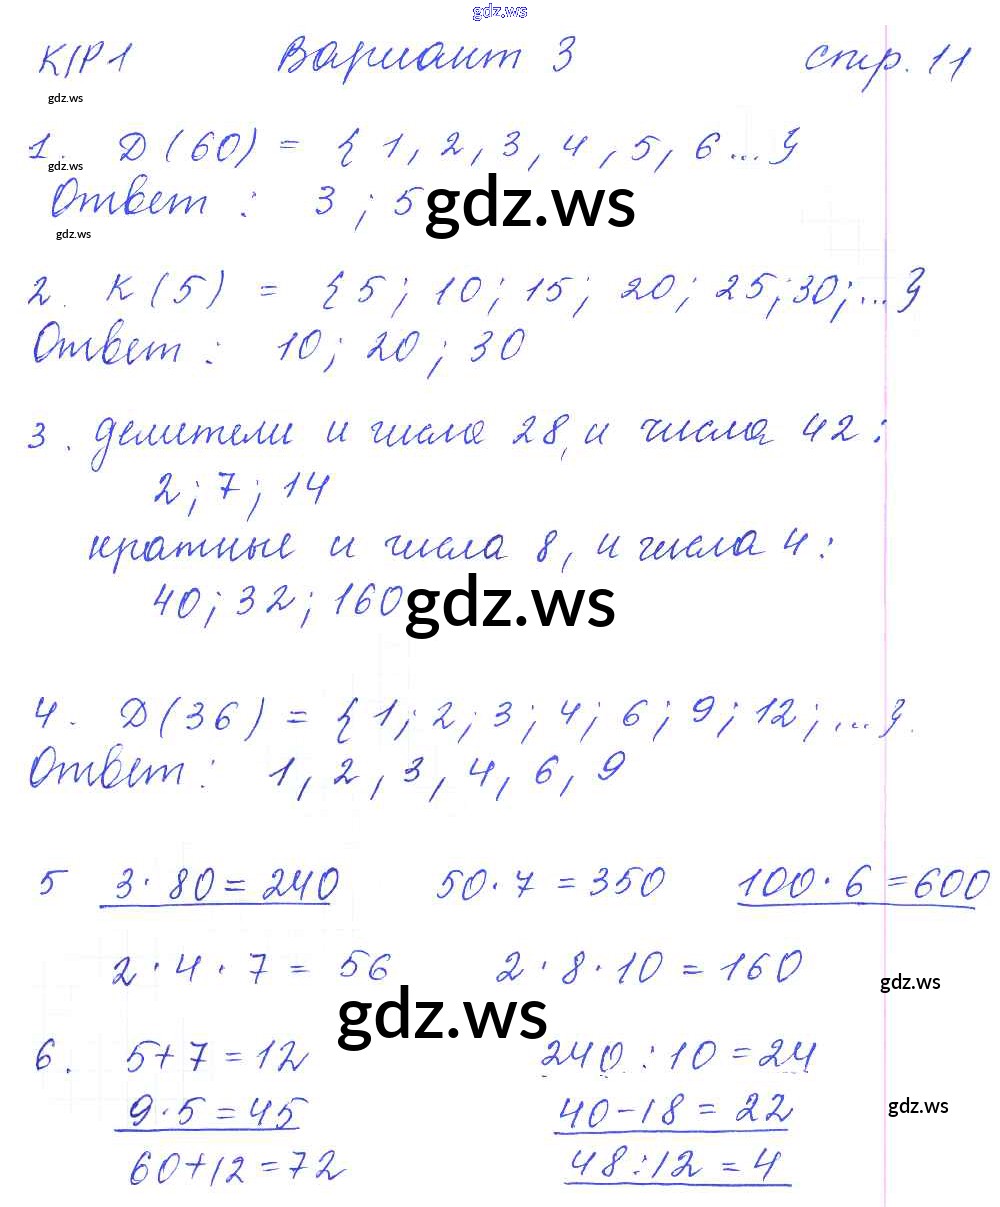 gdz.ws
К/Р 1 Вариант 3 стр. 11
gdz.ws
1. D (60) = { 1, 2, 3, 4, 5, 6 ... }
gdz.ws
Ответ : 3 ; 5
gdz.ws
gdz.ws
2. К (5) = { 5 ; 10 ; 15 ; 20 ; 25 ; 30 ; ... }
Ответ : 10 ; 20 ; 30
3. делители и числа 28, и числа 42 :
2 ; 7 ; 14
кратные и числа 8, и числа 4 :
40 ; 32 ; 160
gdz.ws
4. D (36) = { 1 ; 2 ; 3 ; 4 ; 6 ; 9 ; 12 ; ... }.
Ответ : 1, 2, 3, 4, 6, 9
5 3 · 80 = 240 50 · 7 = 350 100 · 6 = 600
2 · 4 · 7 = 56 2 · 8 · 10 = 160
gdz.ws
gdz.ws
6. 5 + 7 = 12 240 : 10 = 24
9 · 5 = 45 40 - 18 = 22
gdz.ws
60 + 12 = 72 48 : 12 = 4